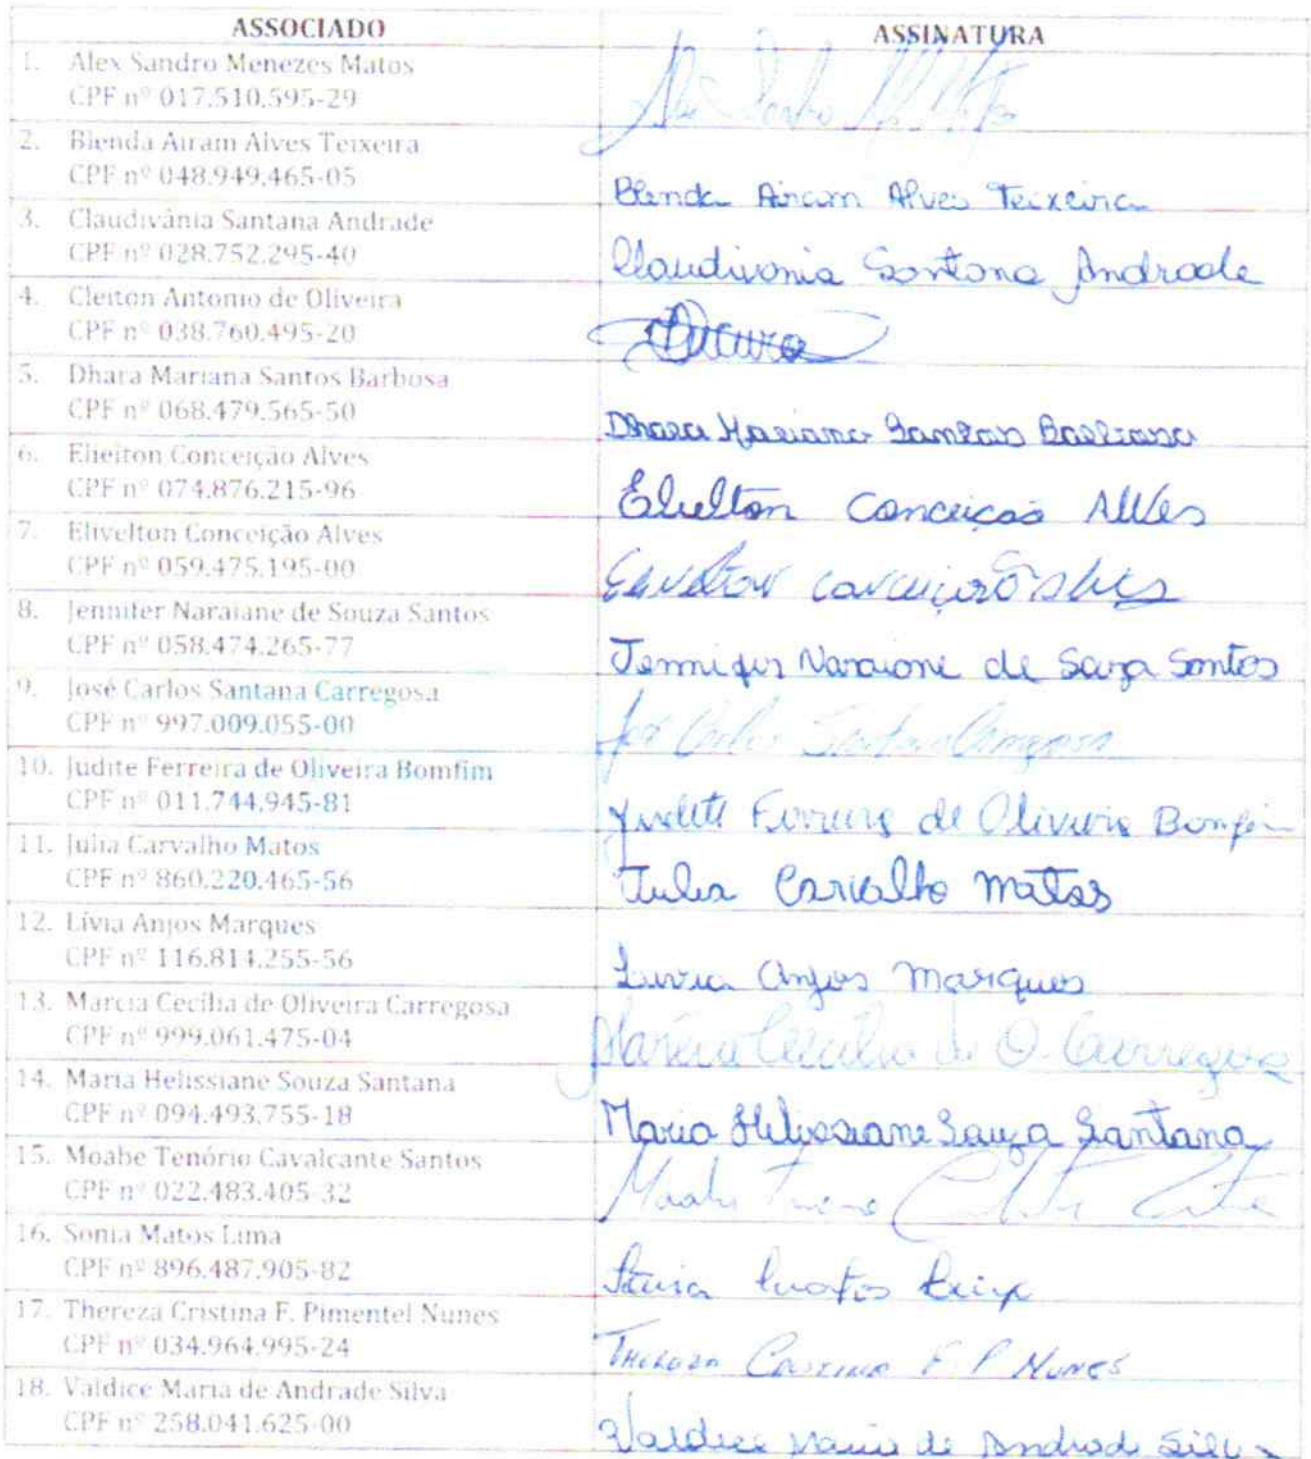 ASSOCIADO ASSINATURA
1. Alex Sandro Menezes Matos
CPF nº 017.510.595-29
2. Blenda Airam Alves Teixeira
CPF nº 048.949.465-05
Blenda Airam Alves Teixeira
3. Claudivânia Santana Andrade
CPF nº 028.752.295-40
Claudivania Santana Andrade
4. Cleiton Antonio de Oliveira
CPF nº 038.760.495-20
5. Dhara Mariana Santos Barbosa
CPF nº 068.479.565-50
Dhara Mariana Santos Barbosa
6. Elielton Conceição Alves
CPF nº 074.876.215-96
Elielton Conceição Alves
7. Elivelton Conceição Alves
CPF nº 059.475.195-00
Elivelton Conceição Alves
8. Jennifer Naraiane de Souza Santos
CPF nº 058.474.265-77
Jennifer Naraiane de Souza Santos
9. José Carlos Santana Carregosa
CPF nº 997.009.055-00
José Carlos Santana Carregosa
10. Judite Ferreira de Oliveira Bomfim
CPF nº 011.744.945-81
Judite Ferreira de Oliveira Bomfim
11. Julia Carvalho Matos
CPF nº 860.220.465-56
Julia Carvalho Matos
12. Lívia Anjos Marques
CPF nº 116.814.255-56
Livia Anjos Marques
13. Marcia Cecília de Oliveira Carregosa
CPF nº 999.061.475-04
Márcia Cecília de O. Carregosa
14. Maria Helissiane Souza Santana
CPF nº 094.493.755-18
Maria Helissiane Souza Santana
15. Moabe Tenório Cavalcante Santos
CPF nº 022.483.405-32
16. Sonia Matos Lima
CPF nº 896.487.905-82
17. Thereza Cristina F. Pimentel Nunes
CPF nº 034.964.995-24
Thereza Cristina F. P. Nunes
18. Valdice Maria de Andrade Silva
CPF nº 258.041.625-00
Valdice Maria de Andrade Silva